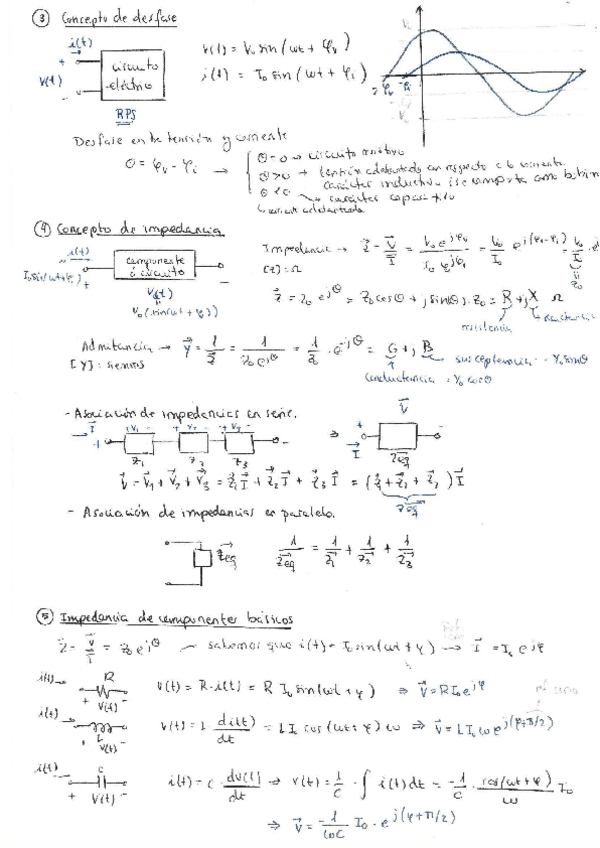 ③ Concepto de desfase
i(t)
+
v(t)
-
circuito
eléctrico
RPS
v(t) = V₀ sin(ωt + φᵥ)
i(t) = I₀ sin(ωt + φᵢ)
V₀
-φᵥ -φᵢ
Desfase entre tensión y corriente
θ = φᵥ - φᵢ →
θ = 0 → circuito resistivo
θ > 0 → tensión adelantada con respecto a la corriente
carácter inductivo (se comporta como bobina
θ < 0 → carácter capacitivo
corriente adelantada
④ Concepto de impedancia
i(t)
I₀ sin(ωt+φᵢ) +
componente
ó circuito
-
V(t)
V₀(sin(ωt + φᵥ))
Impedancia → Z⃗ = V⃗/I⃗ = V₀ e^jφᵥ / I₀ e^jφᵢ = V₀/I₀ e^j(φᵥ-φᵢ) = V₀/I₀ · e
[Z] = Ω
Z₀
Z⃗ = Z₀ e^jθ = Z₀ cosθ + j sin(θ) · Z₀ = R + jX Ω
resistencia
reactancia
Admitancia → Y⃗ = 1/Z⃗ = 1/(Z₀ e^jθ) = 1/Z₀ · e^-jθ = G + j B
[Y] : siemens
susceptancia = -Y₀ sinθ
conductancia = Y₀ cosθ
- Asociación de impedancias en serie.
I⃗ + + V₁ - + V₂ - + V₃ - -
Z₁ Z₂ Z₃
⇒
V⃗
+ -
I⃗
Zeq
V⃗ = V⃗₁ + V⃗₂ + V⃗₃ = Z⃗₁ I⃗ + Z⃗₂ I⃗ + Z⃗₃ I⃗ = (Z⃗₁ + Z⃗₂ + Z⃗₃) I⃗
Z⃗eq
- Asociación de impedancias en paralelo.
Z⃗eq
1/Z⃗eq = 1/Z⃗₁ + 1/Z⃗₂ + 1/Z⃗₃
⑤ Impedancia de componentes básicos
Z⃗ = V⃗/I⃗ = Z₀ e^jθ ~ sabemos que i(t) = I₀ sin(ωt + φ) → I⃗ = I₀ e^jφ
i(t) R
+ V(t) -
v(t) = R · i(t) = R I₀ sin(ωt + φ) ⇒ V⃗ = R I₀ e^jφ
i(t)
+ L -
v(t)
v(t) = L di(t)/dt = L I₀ cos(ωt + φ) ω ⇒ V⃗ = L I₀ ω e^j(φ+π/2)
i(t) C
+ V(t) -
i(t) = C · dv(t)/dt → v(t) = 1/C · ∫ i(t) dt = -1/C · cos(ωt + φ)/ω I₀
⇒ V⃗ = -1/ωC I₀ · e^j(φ + π/2)